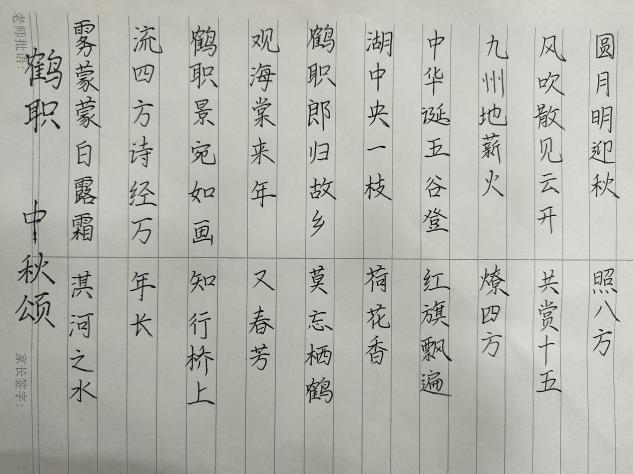 老师批语：
家长签字：
鹤职 中秋颂
雾蒙蒙白露霜 淇河之水
流四方诗经万 年长
鹤职景宛如画 知行桥上
观海棠来年 又春芳
鹤职郎归故乡 莫忘栖鹤
湖中央一枝 荷花香
中华诞五谷登 红旗飘遍
九州地薪火 燎四方
风吹散见云开 共赏十五
圆月明迎秋 照八方